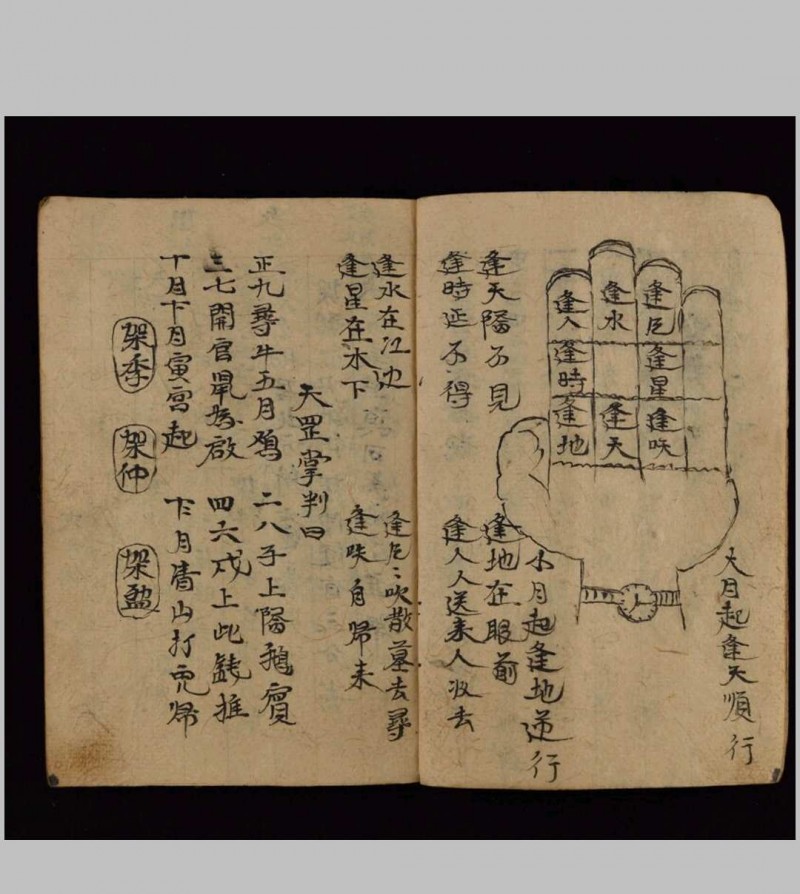 大月起逢天順行
逢厄
逢水
逢人
逢星
逢時
逢咲
逢天
逢地
小月起逢地逆行
逢天陽不見
逢地在眼前
逢時延不得
逢人人送来人收去
逢水在江边
逢厄〻吹散墓去尋
逢星在水下
逢咲自帰来
天罡掌判曰
正九尋牛五月鸡
二八子上陽 賓
三七開官鼠 啟
四六戍上此 推
十月下月寅宫起
十月 山打 帰
架季
架仲
架盈